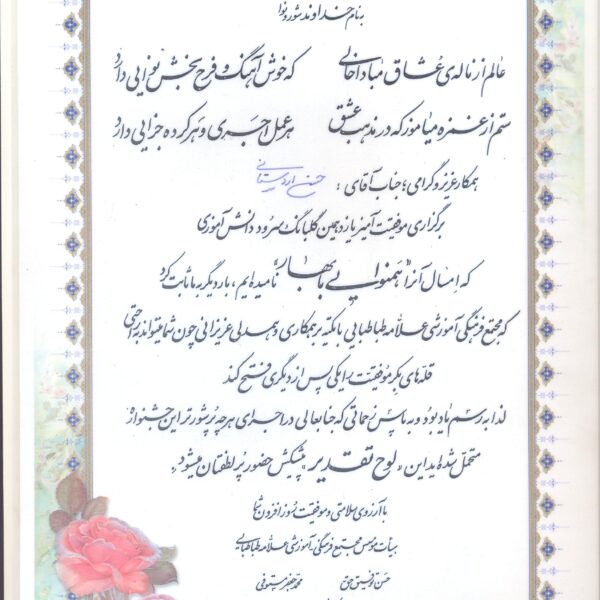 به نام خداوند شور و نوا
عالم از ناله‌ی عشاق مبادا خالی که خوش آهنگ و فرح بخش نوایی دارد
ستم از غمزه میاموز که در مذهب عشق هر عمل اجری و هر کرده جزایی دارد
همکار عزیز و گرامی؛ جناب آقای: حسن اردستانی
برگزاری موفقیت آمیز یازدهمین گلبانگ سرود دانش آموزی
که امسال آنرا "همنوایی با بهار" نامیده ایم، بار دیگر به ما ثابت کرد
که مجتمع فرهنگی آموزشی علامه طباطبایی با تکیه بر همکاری و همدلی عزیزانی چون شما میتواند به راحتی
قله‌های بکر موفقیت را یکی پس از دیگری فتح کند
لذا به رسم یادبود و به پاس زحماتی که جنابعالی در اجرای هر چه پرشورتر این جشنواره
متحمل شده اید این «لوح تقدیر» پیشکش حضور پر لطفتان میشود.
با آرزوی سلامتی و موفقیت روز افزون شما
هیات موسس مجتمع فرهنگی آموزشی علامه طباطبایی
حسن توفیق حق محمد جعفر مستوفی